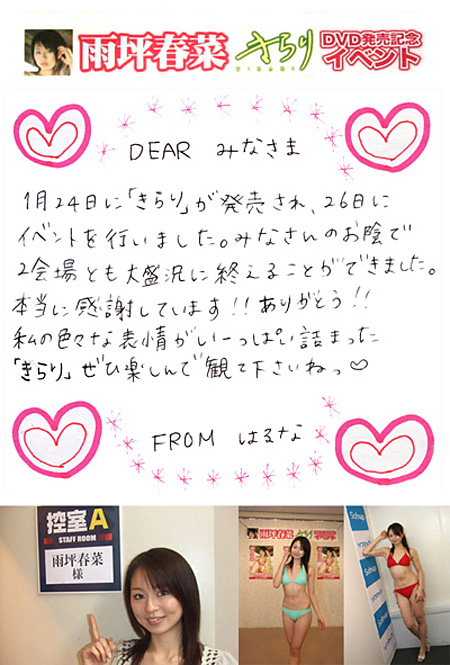 雨坪春菜 きらり DVD発売記念
KIRARI イベント
DEAR みなさま
1月24日に「きらり」が発売され、26日に
イベントを行いました。みなさんのお陰で
2会場とも大盛況に終えることができました。
本当に感謝しています!!ありがとう!!
私の色々な表情がいーっぱい詰まった
「きらり」ぜひ楽しんで観て下さいねっ♡
FROM はるな
控室A
STAFF ROOM
雨坪春菜
様
雨坪春菜 きらり
Sofmap
ソフマップ
Sofmap